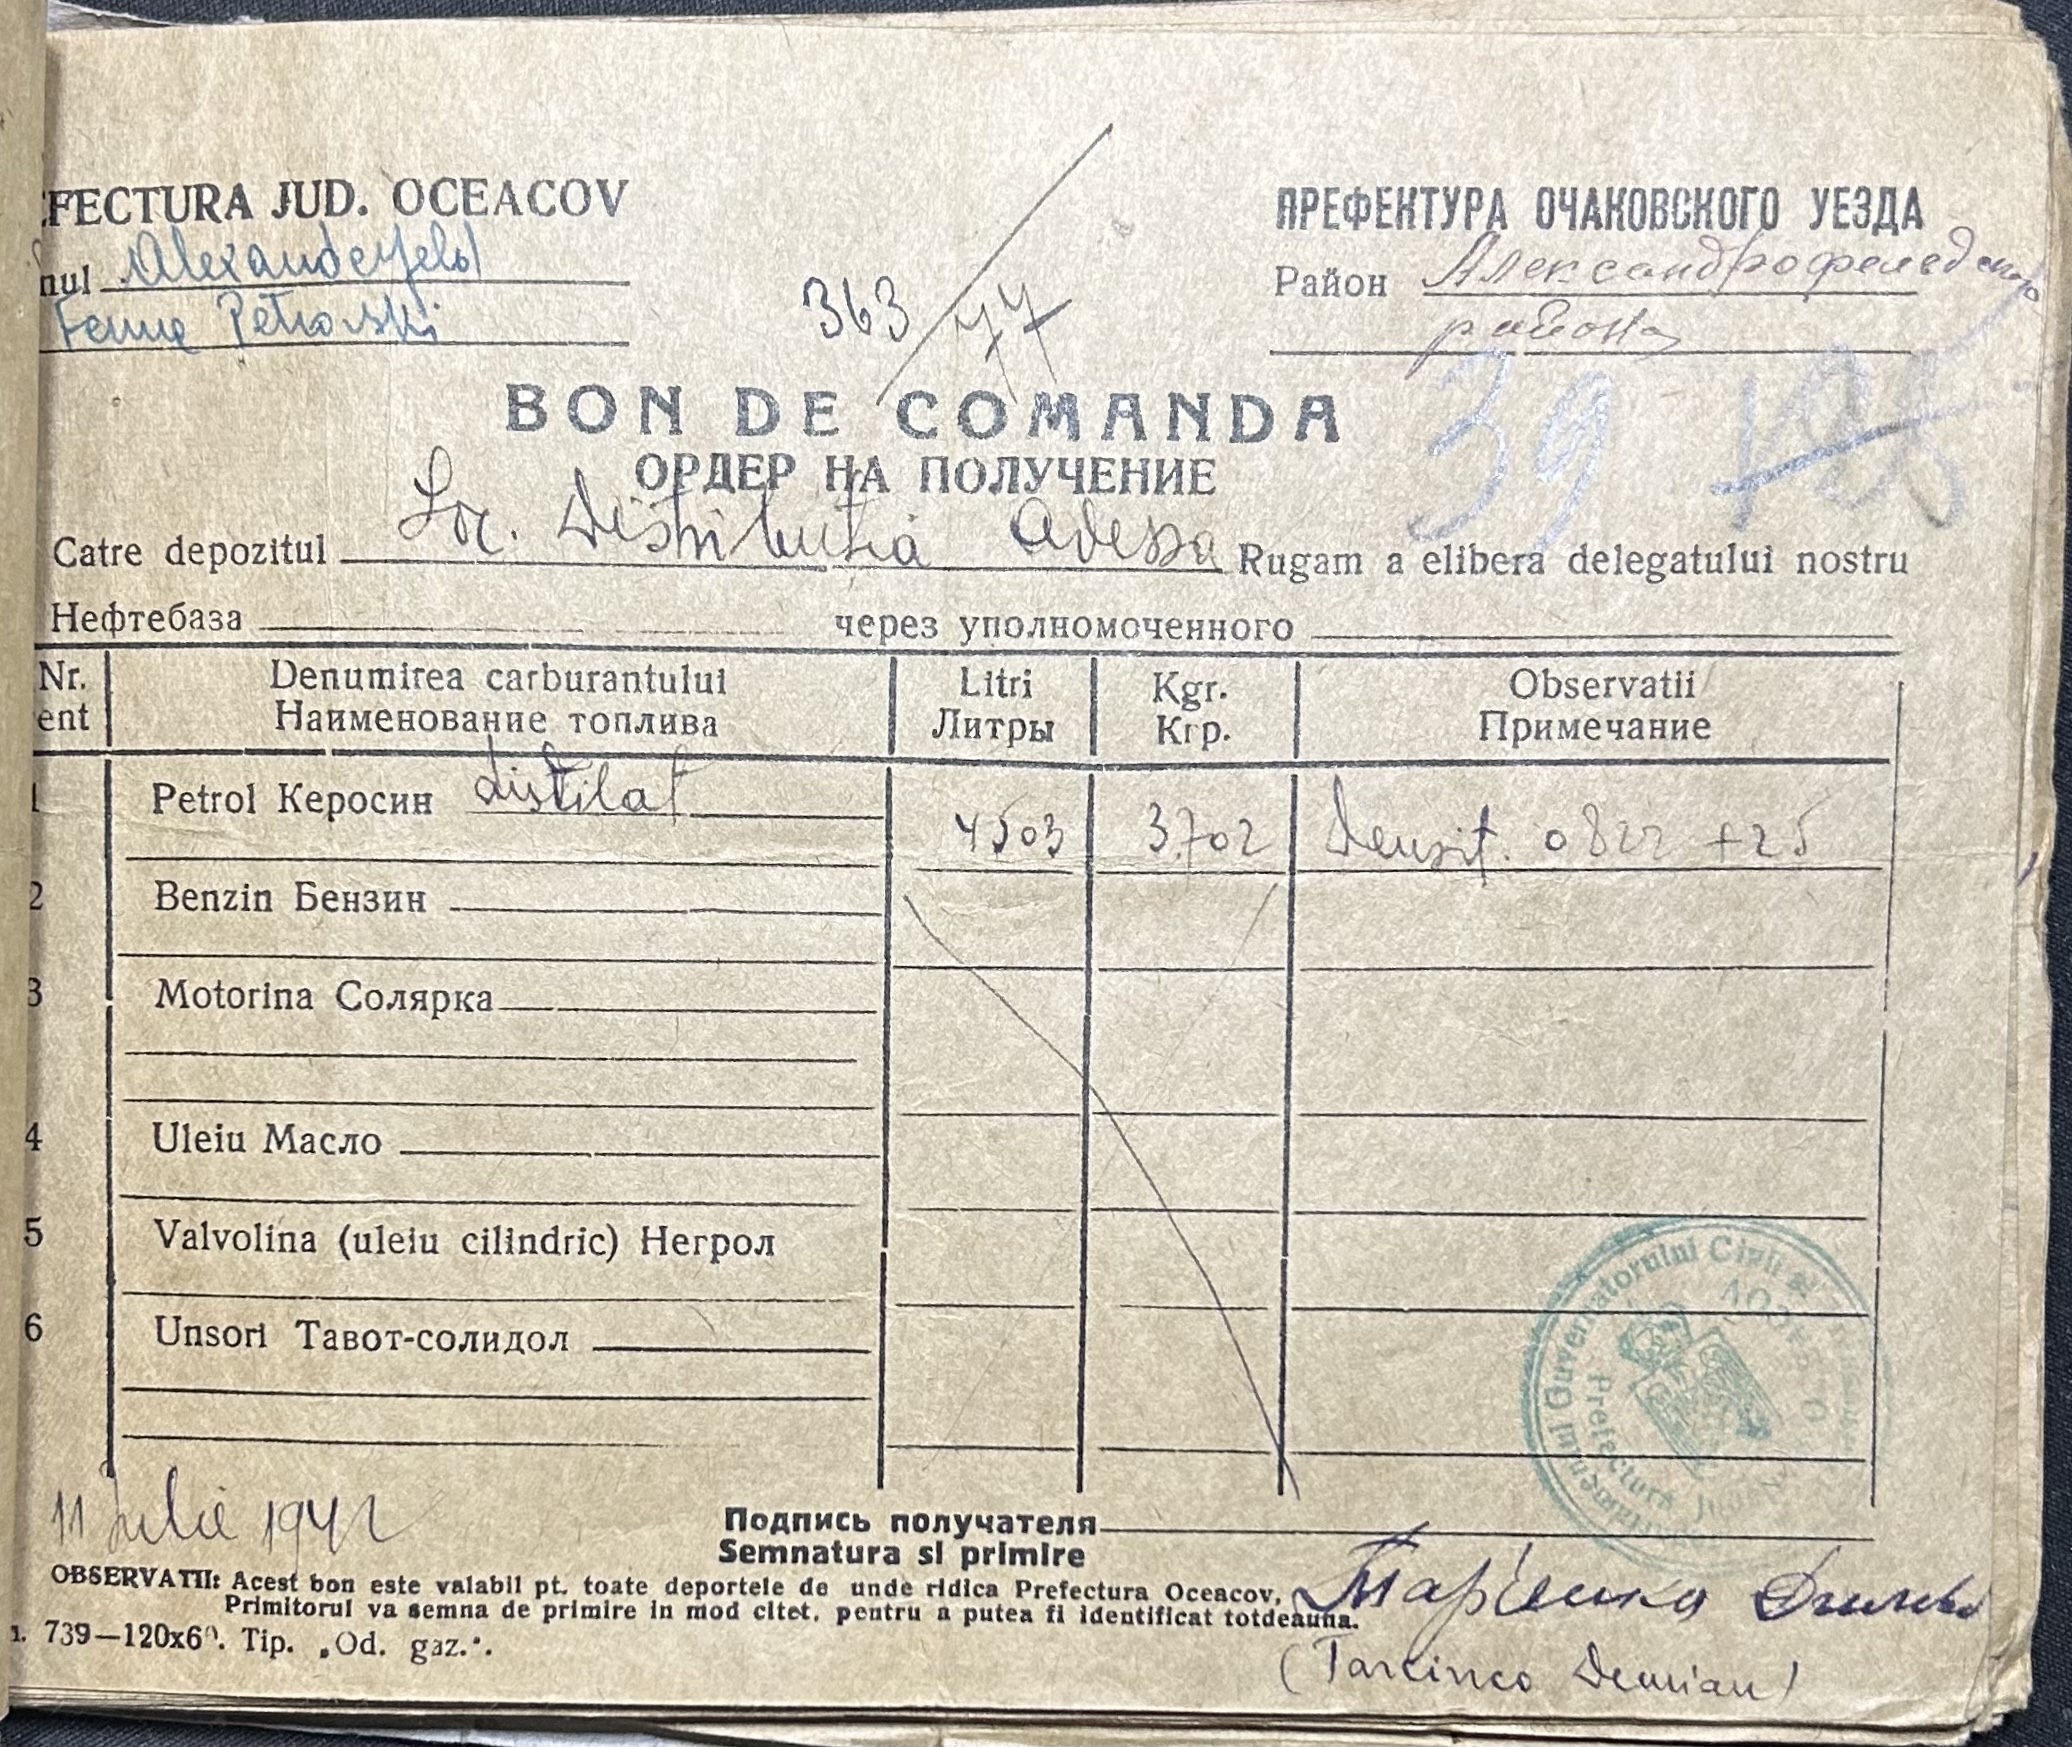 EFECTURA JUD. OCEACOV
nul Alexanderfeld
Ferme Petrovski
363/77
ПРЕФЕКТУРА ОЧАКОВСКОГО УЕЗДА
Район Александрофельдского
района
39
BON DE COMANDA
ОРДЕР НА ПОЛУЧЕНИЕ
Catre depozitul Soc. Distributia Odessa Rugam a elibera delegatului nostru
Нефтебаза через уполномоченного
Nr. Denumirea carburantului Litri Kgr. Observatii
ent Наименование топлива Литры Кгр. Примечание
1 Petrol Керосин distilat 4503 3.702 Densit. 0822 +25
2 Benzin Бензин
3 Motorina Солярка
4 Uleiu Масло
5 Valvolina (uleiu cilindric) Негрол
6 Unsori Тавот-солидол
Guvernatorului Civil al
Prefectura Jud
11 Iulie 1942
Подпись получателя
Semnatura si primire
OBSERVATII: Acest bon este valabil pt. toate deportele de unde ridica Prefectura Oceacov,
Primitorul va semna de primire in mod citet, pentru a putea fi identificat totdeauna.
739—120x60. Tip. „Od. gaz.".
(Tarcinco Demian)